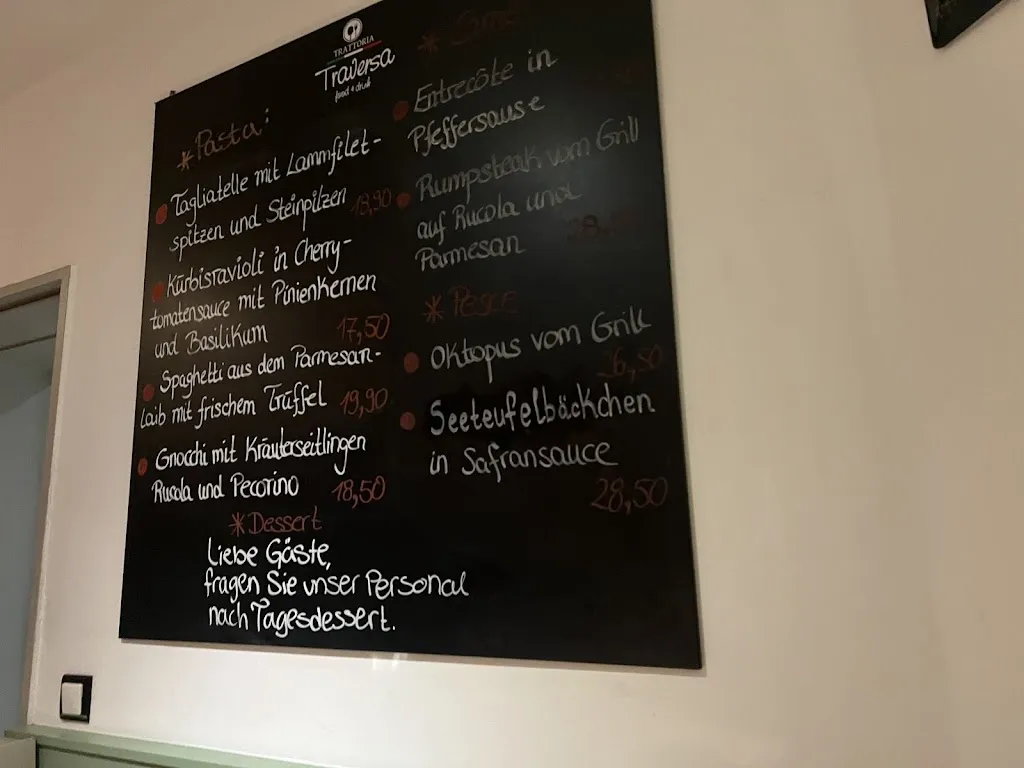 TRATTORIA
Traversa
food & drink
*Pasta:
Tagliatelle mit Lammfilet-
spitzen und Steinpilzen 18,90
Kürbisravioli in Cherry-
tomatensauce mit Pinienkernen
und Basilikum 17,50
Spaghetti aus dem Parmesan-
Laib mit frischem Trüffel 19,90
Gnocchi mit Kräuterseitlingen
Rucola und Pecorino 18,50
*Dessert
Liebe Gäste,
fragen Sie unser Personal
nach Tagesdessert.
Entrecôte in
Pfeffersause
Rumpsteak vom Grill
auf Rucola und
Parmesan
*Pesce
Oktopus vom Grill
26,50
Seeteufelbäckchen
in Safransauce
28,50